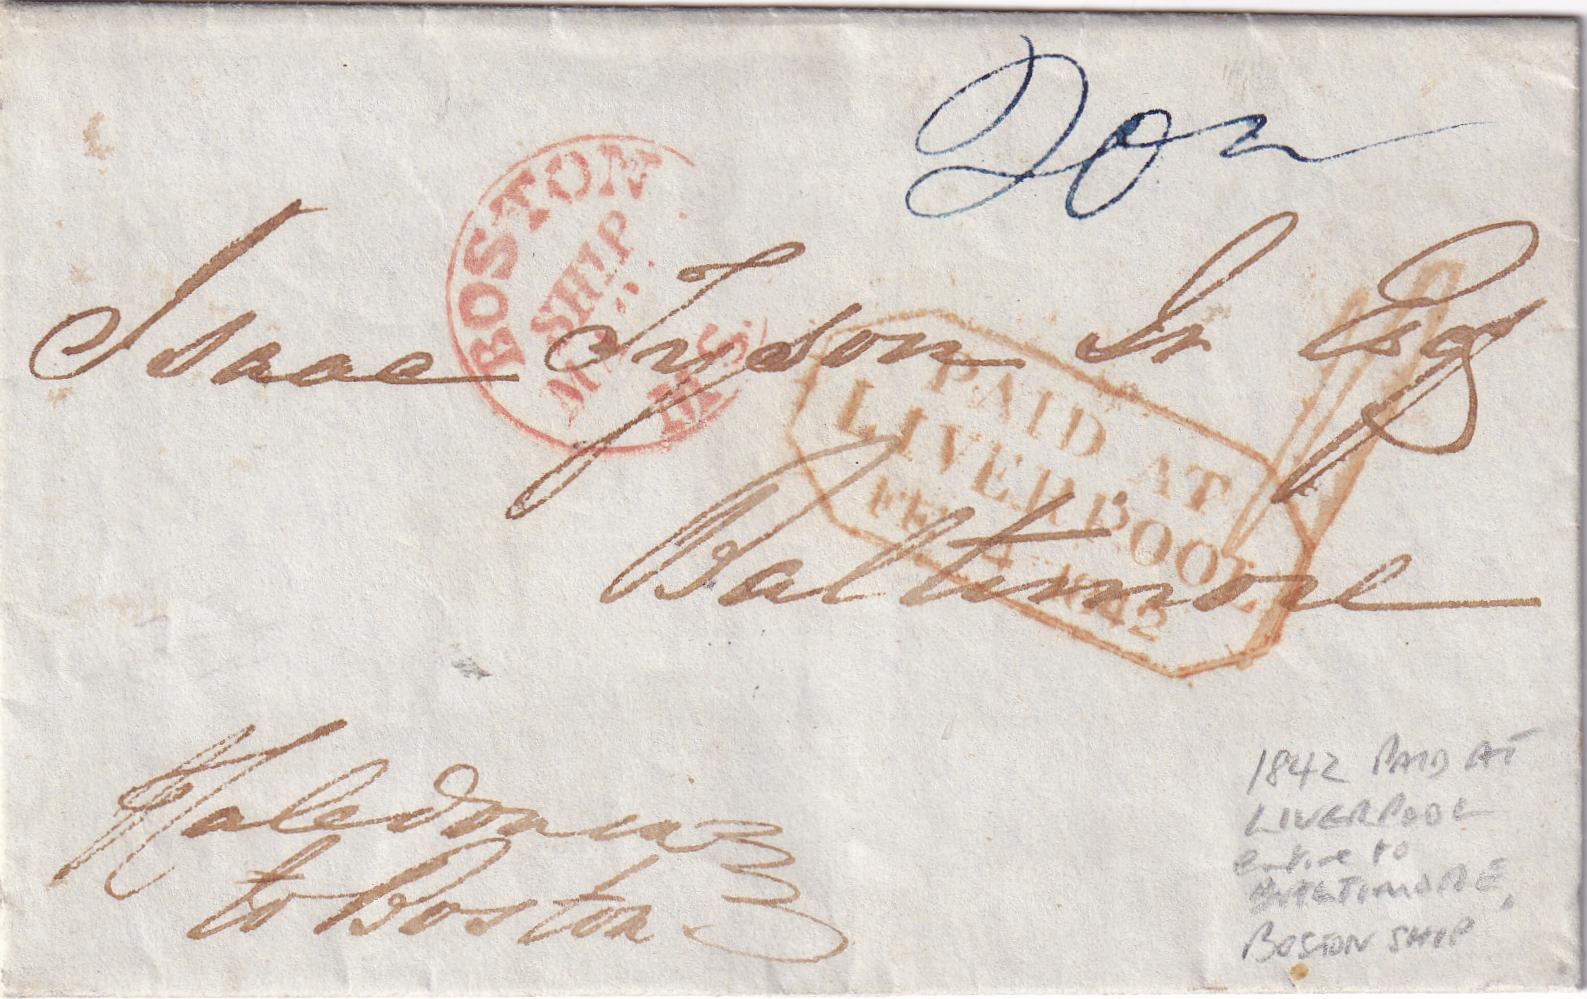 BOSTON
SHIP
MS.
Isaac Tyson Jr Esq
PAID AT
LIVERPOOL
1842
Baltimore
Kaledonia
to Boston
1842 PAID AT
LIVERPOOL
entire to
BALTIMORE,
BOSTON SHIP